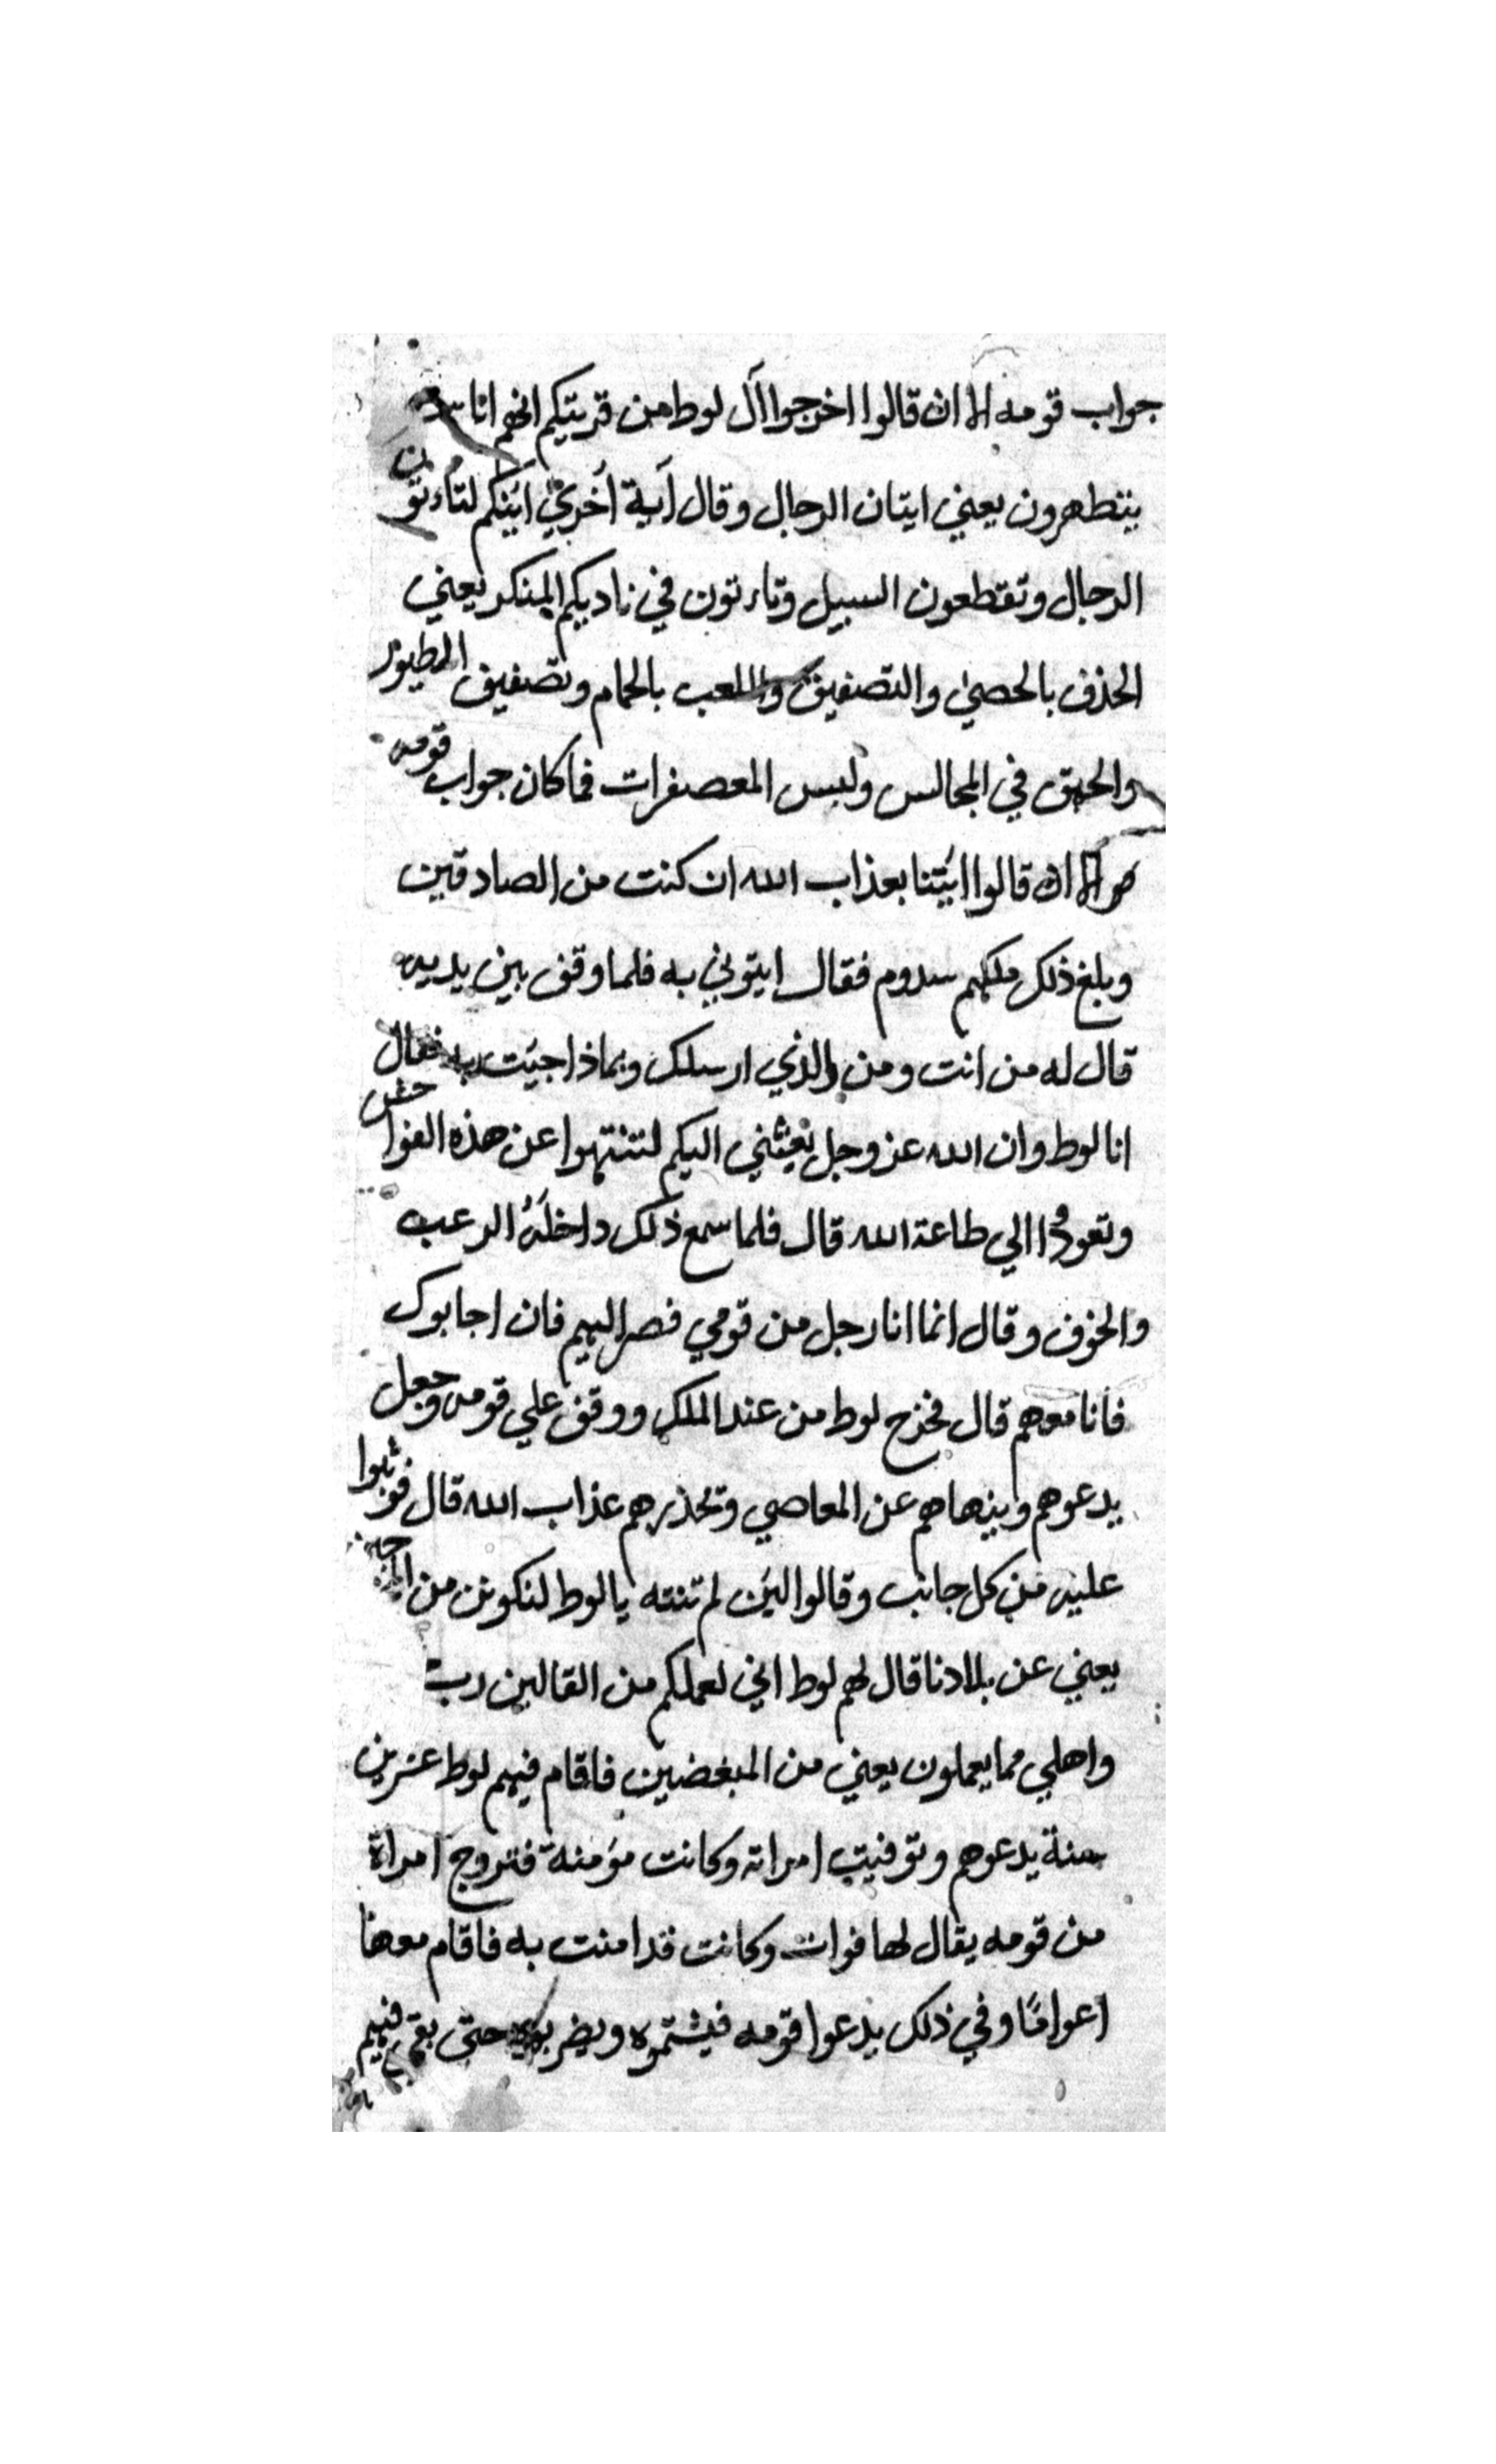 جواب قومه الا ان قالوا اخرجوا آل لوط من قريتكم انهم اناس
يتطهرون يعني ايتان الرجال وقال آية أخري ائينكم لتأءتون
الرجال وتقطعون السبيل وتاءتون في ناديكم المنكر يعني
الحذف بالحصي والتصفيق واللعب بالحمام وتصفيق الطيور
والحبق في المجالس ولبس المعصفرات فما كان جواب قومه
الا ان قالوا ائيتنا بعذاب الله ان كنت من الصادقين
وبلغ ذلك ملكهم سدوم فقال ايتوني به فلما وقف بين يديه
قال له من انت ومن والذي ارسلك وبماذا جيت به فقال
انا لوط وان الله عز وجل بعثني اليكم لتنتهوا عن هذه الفواحش
وتعودوا الي طاعة الله قال فلما سمع ذلك داخله الرعب
والخوف وقال انما انا رجل من قومي فصر اليهم فان اجابوك
فانا معهم قال فخرج لوط من عند الملك ووقف علي قومه وجعل
يدعوهم وينهاهم عن المعاصي وتحذرهم عذاب الله قال فوثبوا
عليه من كل جانب وقالوا لين لم تنته يا لوط لنكونن من
يعني عن بلادنا قال لهم لوط اني لعملكم من القالين رب
واهلي مما يعملون يعني من المبغضين فاقام فيهم لوط عشرين
سنة يدعوهم وتوفيت امراته وكانت مؤمنة فتروج امراة
من قومه يقال لها فوات وكانت قد امنت به فاقام معها
اعواما وفي ذلك يدعوا قومه فيشتموه ويضربوه حتى بقي فيهم